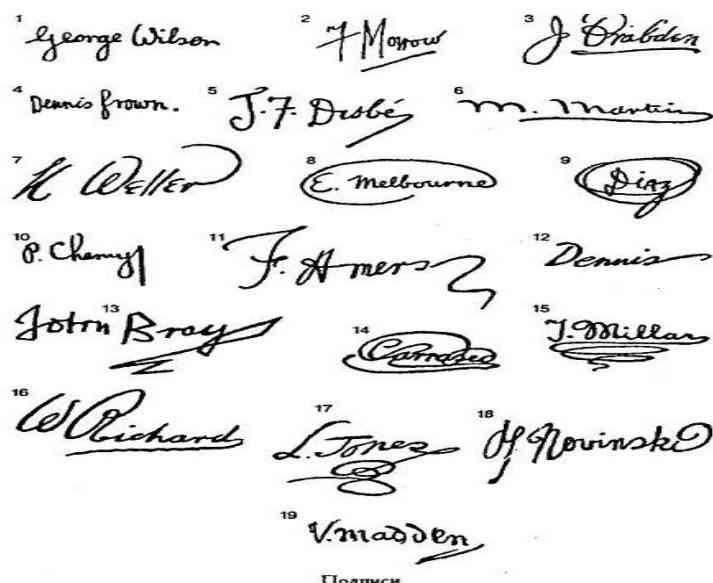 1 George Wilson
2 F Morrow
3 J Drabden
4 Dennis Frown.
5 J. F. Disbé
6 M. Martin
7 H Weller
8 E. Melbourne
9 Diaz
10 P. Chemy
11 F. Amers
12 Dennis
13 John Bray
14 Carrasco
15 J. Millar
16 W Richard
17 L. Jones
18 H. Novinski
19 V. madden
Подписи